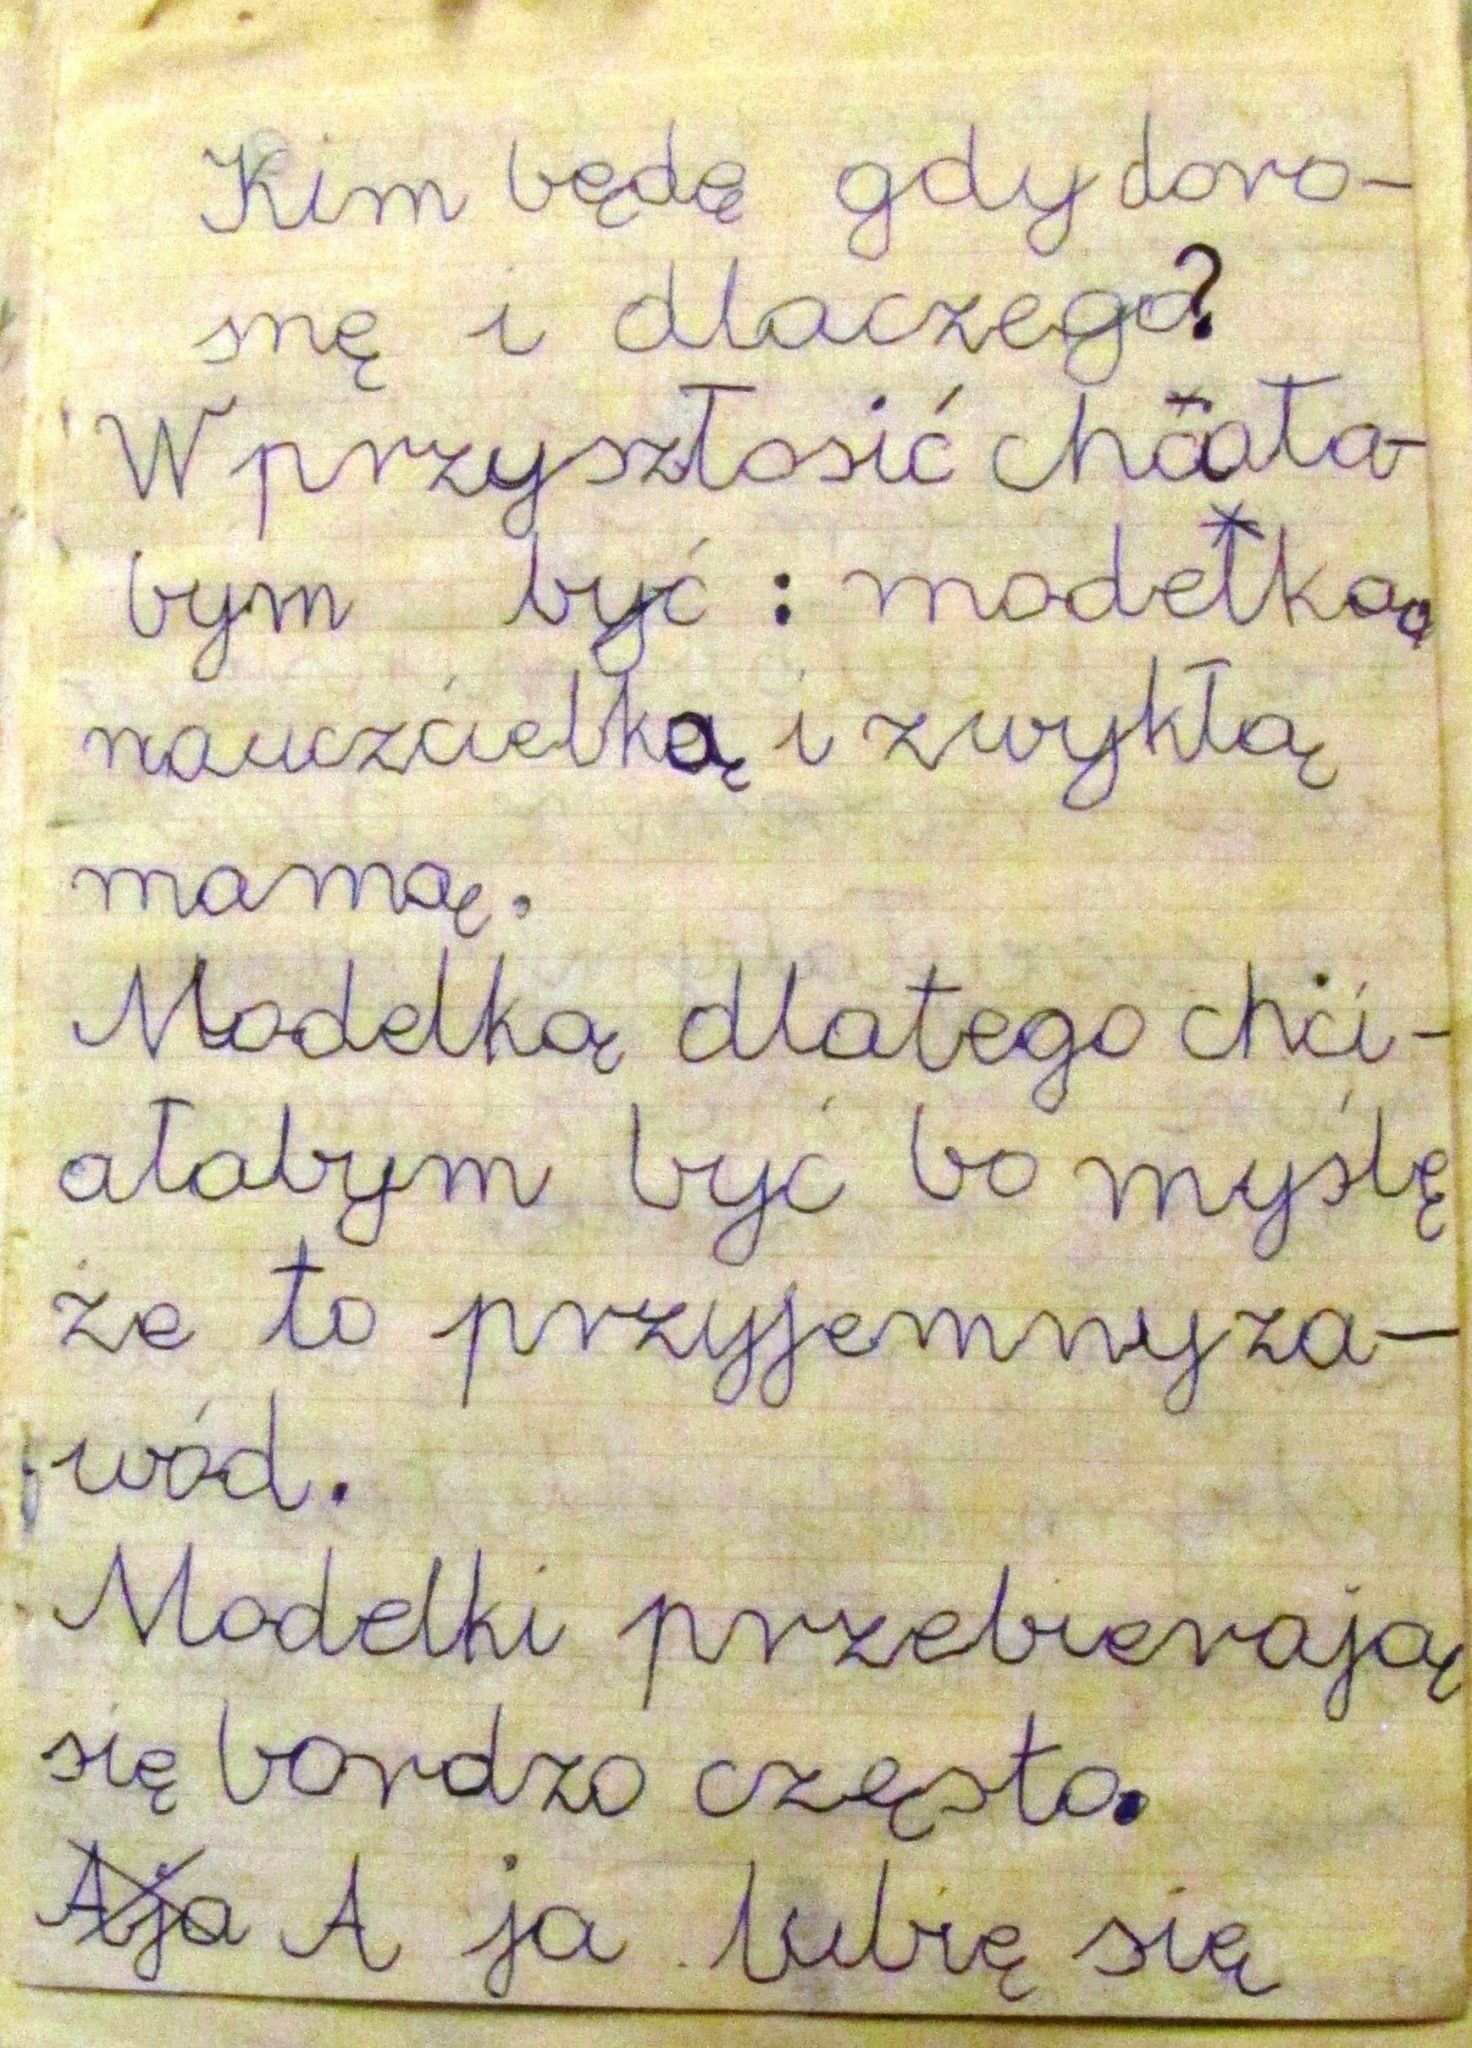 Kim będę gdy doro-
snę i dlaczego?
W przyszłosić chciała-
bym być : modelką
nauczćielką i zwykłą
mamą.
Modelką dlatego chći-
ałabym być bo myślę
że to przyjemny za-
wód.
Modelki przebierają
się bardzo często.
A ja A ja lubię się